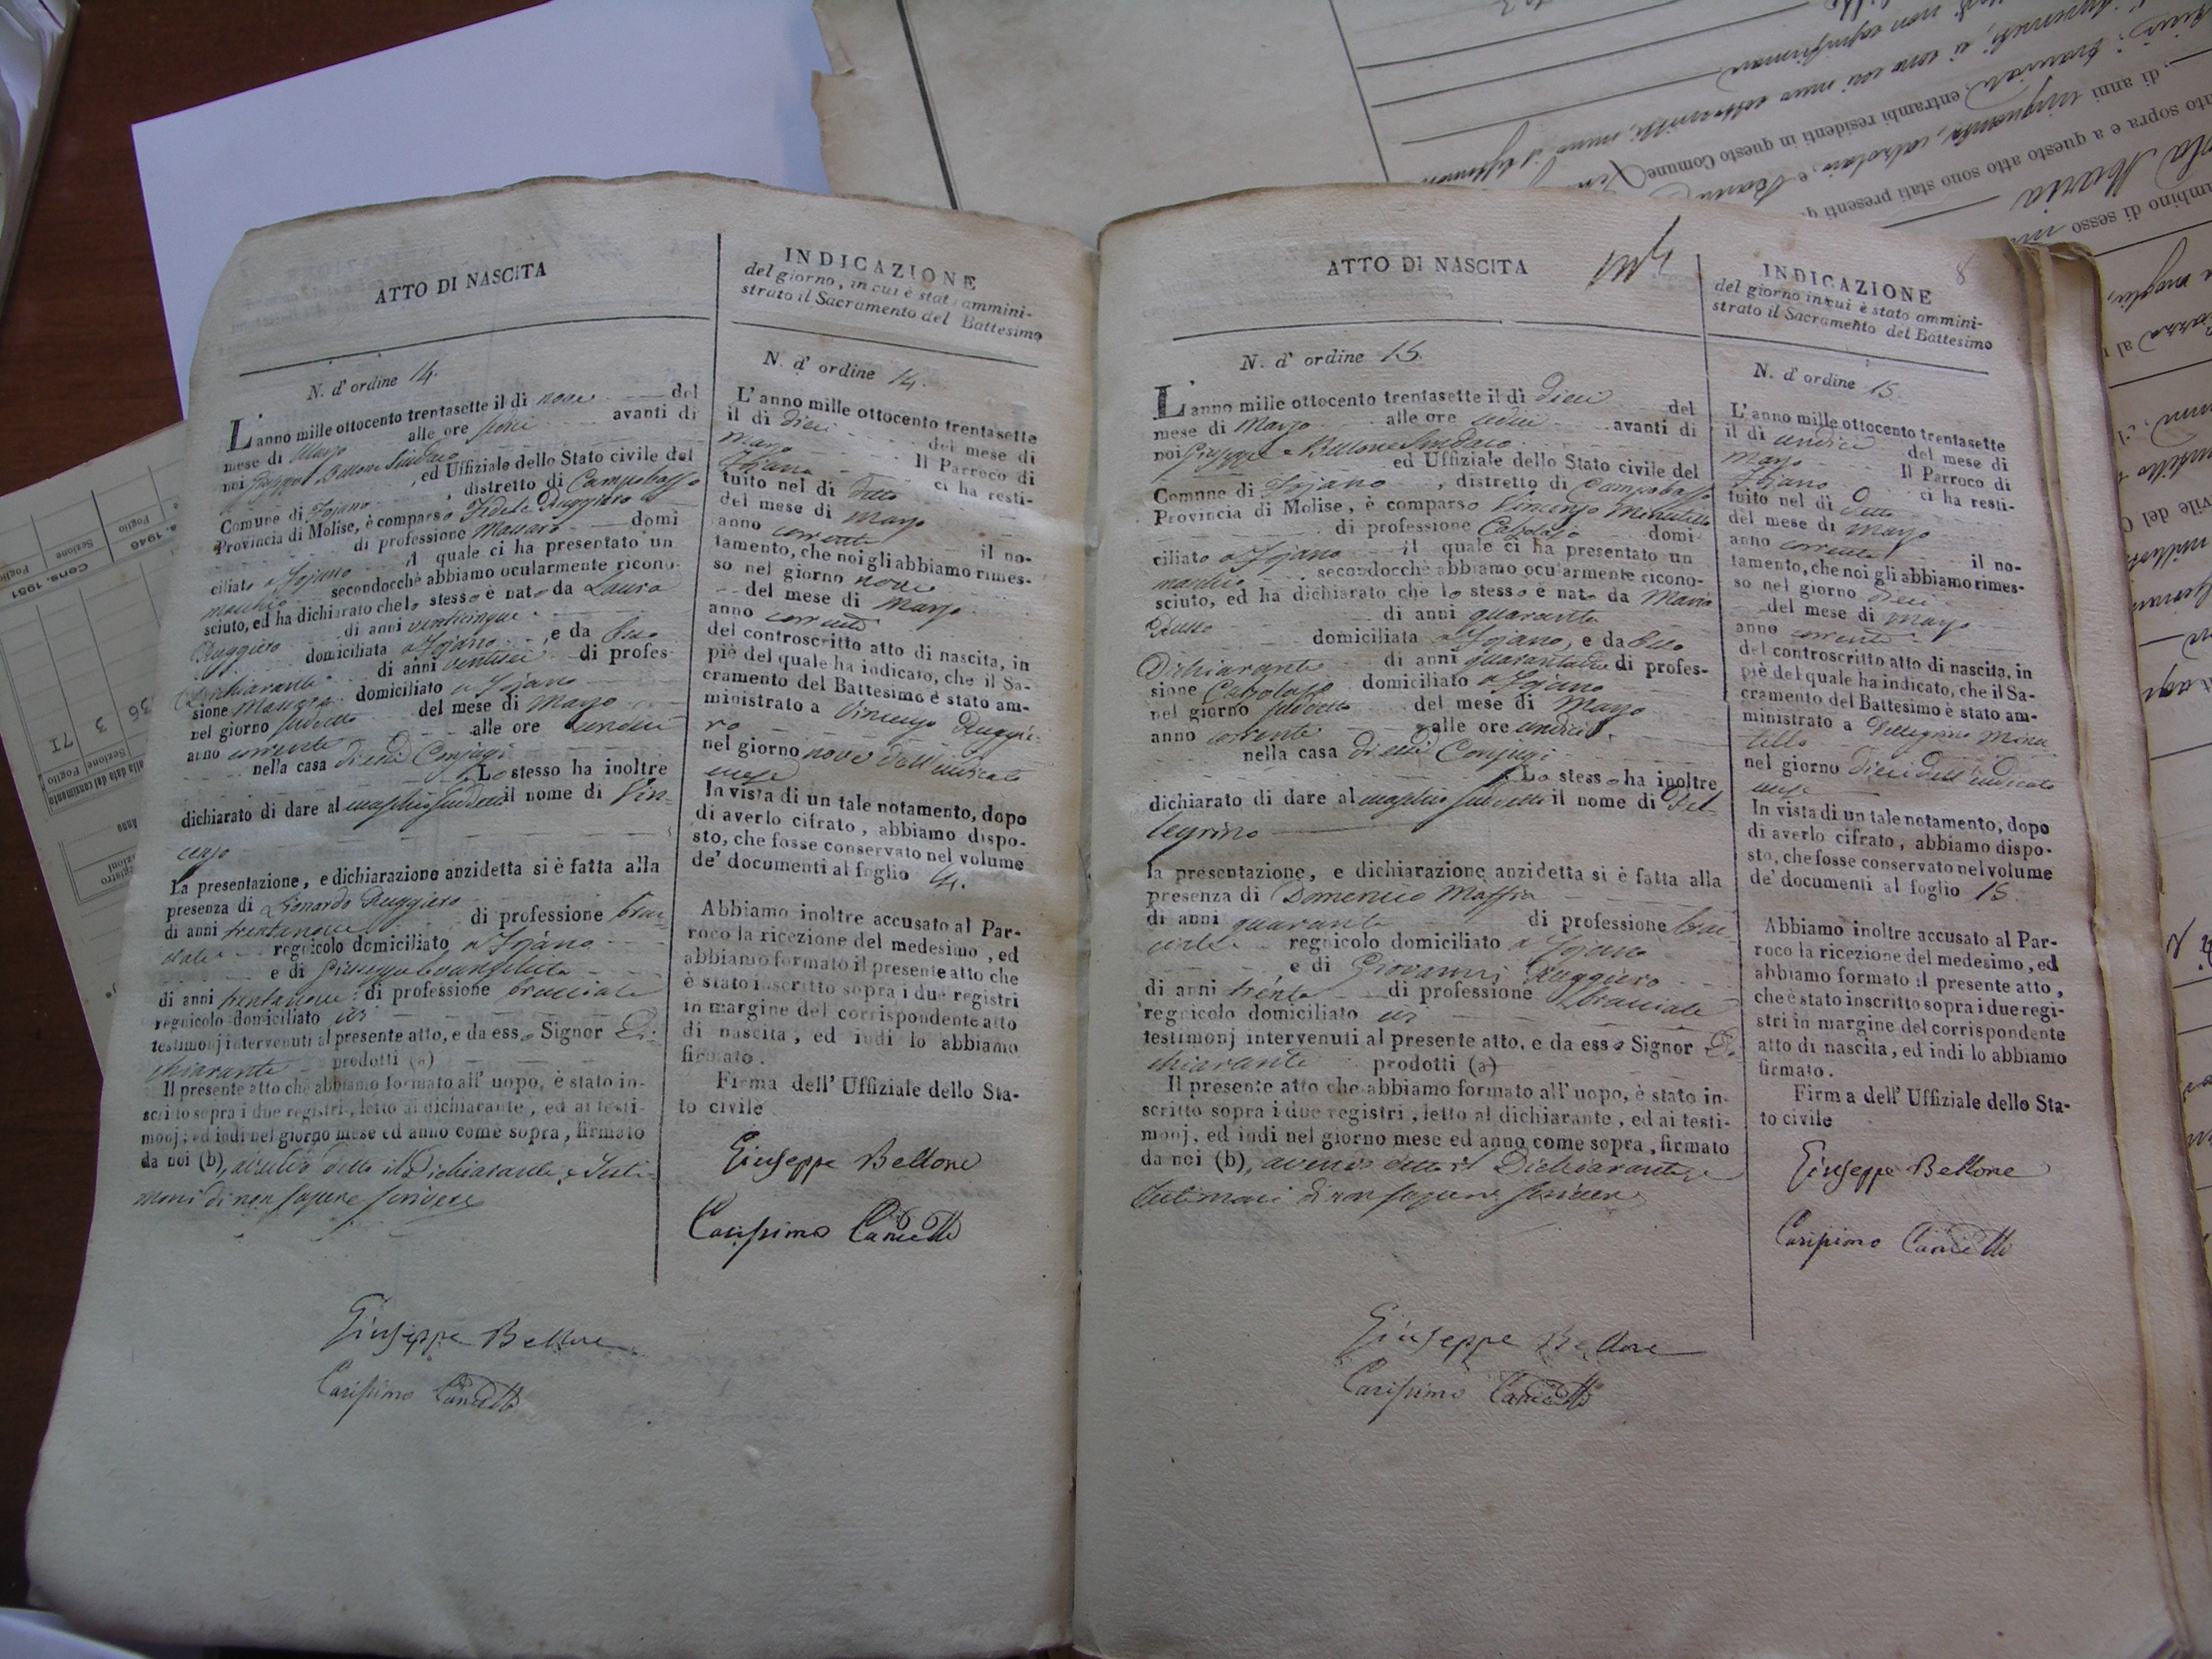 ATTO DI NASCITA
N. d' ordine 14.
L'anno mille ottocento trentasette il di nove del
mese di Marzo alle ore avanti di
noi Giuseppe Bellone Sindaco
ed Uffiziale dello Stato civile del
Comune di Jojano, distretto di Campobasso
Provincia di Molise, è comparso Fedele Ruggiero
di professione Massaro domi
ciliato a Jojano il quale ci ha presentato un
maschio secondocchè abbiamo ocularmente ricono-
sciuto, ed ha dichiarato che lo stesso è nato da Laura
Ruggiero di anni venticinque
domiciliata a Jojano, e da esso
Dichiarante di anni ventisei di profes-
sione Massaro domiciliato a Jojano
nel giorno suddetto del mese di Marzo
anno corrente alle ore undici
nella casa di essi Conjugi
Lo stesso ha inoltre
dichiarato di dare al maschio suddetto il nome di Vin-
cenzo
La presentazione, e dichiarazione anzidetta si è fatta alla
presenza di Lionardo Ruggiero
di anni trentanove di professione brac-
ciale regnicolo domiciliato a Jojano
e di Giuseppe Evangelista
di anni trentanove di professione bracciale
regnicolo domiciliato ivi
testimonj intervenuti al presente atto, e da esso Signor Di-
chiarante prodotti (a)
Il presente atto che abbiamo formato all' uopo, è stato in-
scritto sopra i due registri, letto al dichiarante, ed ai testi-
monj; ed indi nel giorno mese ed anno come sopra, firmato
da noi (b), avendo detto il Dichiarante, e Testi-
moni di non sapere scrivere
Giuseppe Bellone
Carissimo
INDICAZIONE
del giorno, in cui è stato ammini-
strato il Sacramento del Battesimo
N. d' ordine 14.
L'anno mille ottocento trentasette
il di dieci del mese di
Marzo Il Parroco di
Jojano ci ha resti-
tuito nel di detto
del mese di Marzo
anno corrente il no-
tamento, che noi gli abbiamo rimes-
so nel giorno nove
del mese di Marzo
anno corrente
del controscritto atto di nascita, in
piè del quale ha indicato, che il Sa-
cramento del Battesimo è stato am-
ministrato a Vincenzo Ruggie-
ro
nel giorno nove dell'indicato
mese
In vista di un tale notamento, dopo
di averlo cifrato, abbiamo dispo-
sto, che fosse conservato nel volume
de' documenti al foglio 14.
Abbiamo inoltre accusato al Par-
roco la ricezione del medesimo, ed
abbiamo formato il presente atto che
è stato inscritto sopra i due registri
in margine del corrispondente atto
di nascita, ed indi lo abbiamo
firmato.
Firma dell' Uffiziale dello Sta-
to civile
Giuseppe Bellone
Carissimo
ATTO DI NASCITA
N. d' ordine 15.
L'anno mille ottocento trentasette il di dieci del
mese di Marzo alle ore avanti di
noi Giuseppe Bellone Sindaco
ed Uffiziale dello Stato civile del
Comune di Jojano, distretto di Campobasso
Provincia di Molise, è comparso Vincenzo Minutillo
di professione Calzolajo domi-
ciliato a Jojano il quale ci ha presentato un
maschio secondocchè abbiamo ocularmente ricono-
sciuto, ed ha dichiarato che lo stesso è nato da Maria
Russo di anni quaranta
domiciliata a Jojano, e da esso
Dichiarante di anni quarantadue di profes-
sione Calzolajo domiciliato a Jojano
nel giorno suddetto del mese di Marzo
anno corrente alle ore undici
nella casa di essi Conjugi
Lo stesso ha inoltre
dichiarato di dare al maschio suddetto il nome di Pel-
legrino
la presentazione, e dichiarazione anzidetta si è fatta alla
presenza di Domenico Maffia
di anni quaranta di professione brac-
ciale regnicolo domiciliato a Jojano
e di Giovanni Ruggiero
di anni trenta di professione bracciale
regnicolo domiciliato ivi
testimonj intervenuti al presente atto, e da esso Signor Di-
chiarante prodotti (a)
Il presente atto che abbiamo formato all' uopo, è stato in-
scritto sopra i due registri, letto al dichiarante, ed ai testi-
monj, ed indi nel giorno mese ed anno come sopra, firmato
da noi (b), avendo detto il Dichiarante, e
Testimoni di non sapere scrivere
Giuseppe Bellone
Carissimo
8
INDICAZIONE
del giorno in cui è stato ammini-
strato il Sacramento del Battesimo
N. d' ordine 15.
L'anno mille ottocento trentasette
il di undici del mese di
Marzo Il Parroco di
Jojano ci ha resti-
tuito nel di detto
del mese di Marzo
anno corrente il no-
tamento, che noi gli abbiamo rimes-
so nel giorno dieci
del mese di Marzo
anno corrente
del controscritto atto di nascita, in
piè del quale ha indicato, che il Sa-
cramento del Battesimo è stato am-
ministrato a Pellegrino Minu-
tillo
nel giorno dieci dell'indicato
mese
In vista di un tale notamento, dopo
di averlo cifrato, abbiamo dispo-
sto, che fosse conservato nel volume
de' documenti al foglio 15.
Abbiamo inoltre accusato al Par-
roco la ricezione del medesimo, ed
abbiamo formato il presente atto,
che è stato inscritto sopra i due regi-
stri in margine del corrispondente
atto di nascita, ed indi lo abbiamo
firmato.
Firma dell' Uffiziale dello Sta-
to civile
Giuseppe Bellone
Carissimo